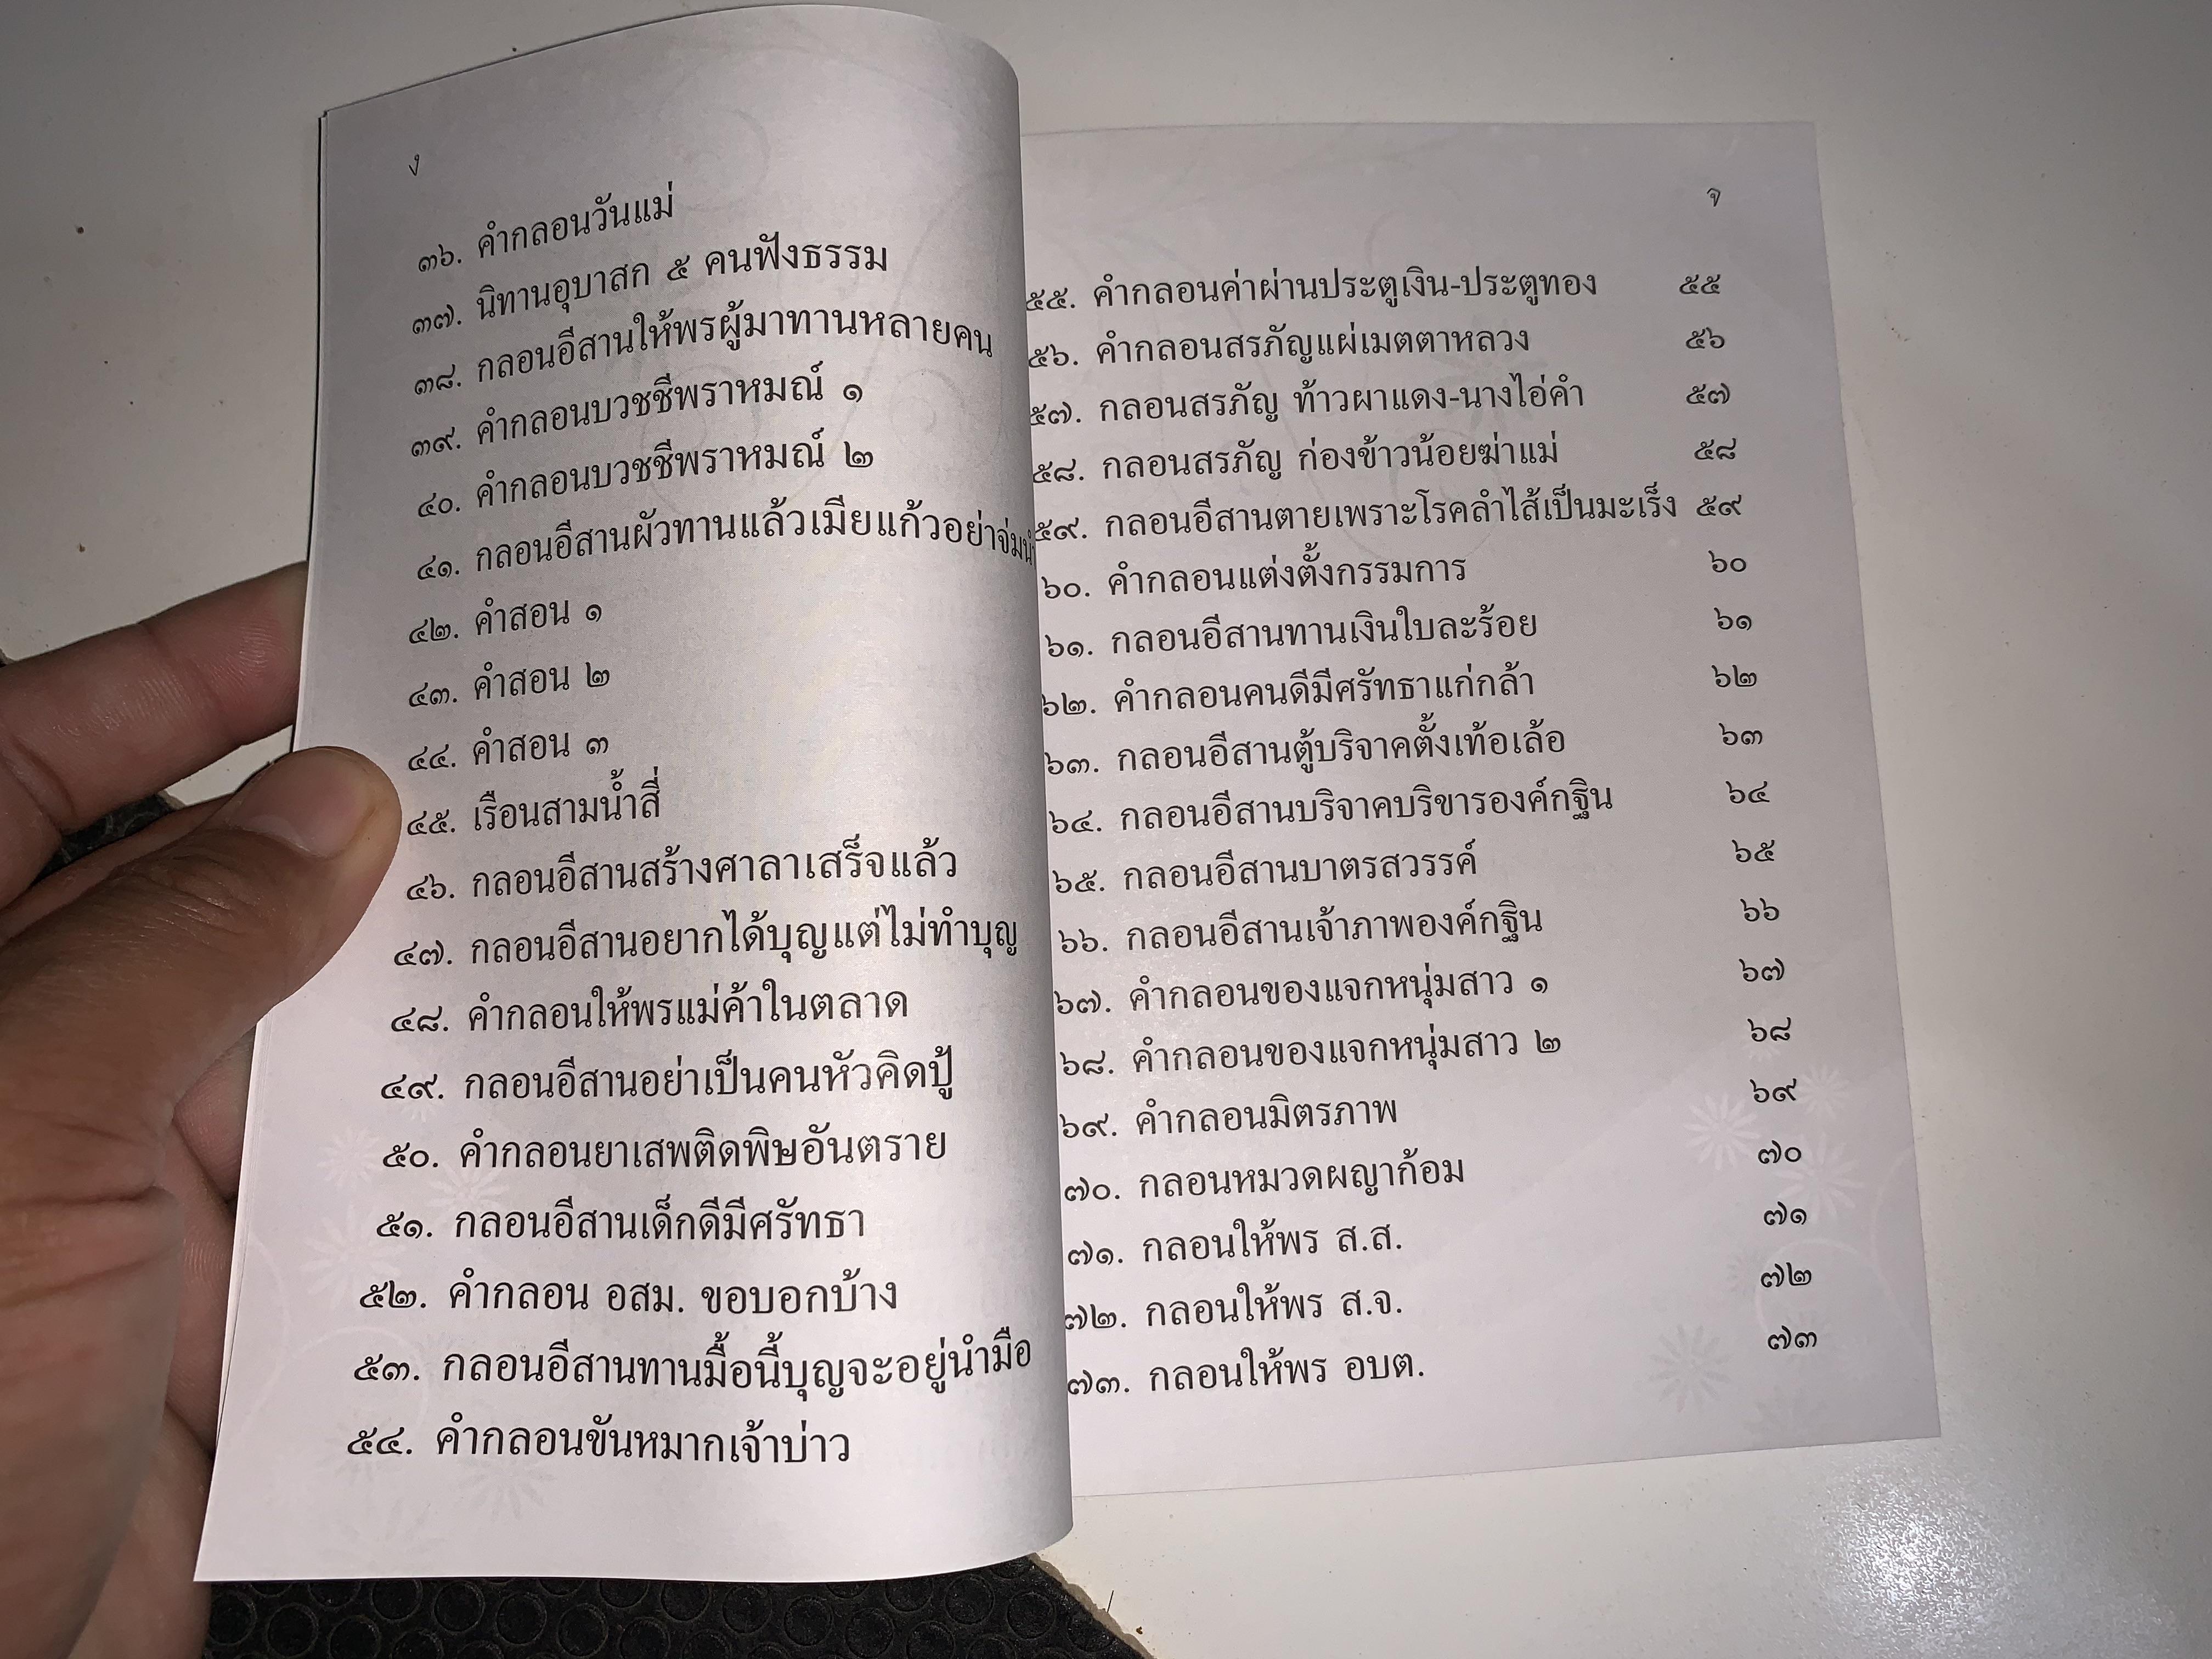 ง
๓๖. คำกลอนวันแม่
๓๗. นิทานอุบาสก ๕ คนฟังธรรม
๓๘. กลอนอีสานให้พรผู้มาทานหลายคน
๓๙. คำกลอนบวชชีพราหมณ์ ๑
๔๐. คำกลอนบวชชีพราหมณ์ ๒
๔๑. กลอนอีสานผัวทานแล้วเมียแก้วอย่าจ่ม
๔๒. คำสอน ๑
๔๓. คำสอน ๒
๔๔. คำสอน ๓
๔๕. เรือนสามน้ำสี่
๔๖. กลอนอีสานสร้างศาลาเสร็จแล้ว
๔๗. กลอนอีสานอยากได้บุญแต่ไม่ทำบุญ
๔๘. คำกลอนให้พรแม่ค้าในตลาด
๔๙. กลอนอีสานอย่าเป็นคนหัวคิดปู้
๕๐. คำกลอนยาเสพติดพิษอันตราย
๕๑. กลอนอีสานเด็กดีมีศรัทธา
๕๒. คำกลอน อสม. ขอบอกบ้าง
๕๓. กลอนอีสานทานมื้อนี้บุญจะอยู่นำมือ
๕๔. คำกลอนขันหมากเจ้าบ่าว
จ
๕๕. คำกลอนค่าผ่านประตูเงิน-ประตูทอง ๕๕
๕๖. คำกลอนสรภัญแผ่เมตตาหลวง ๕๖
๕๗. กลอนสรภัญ ท้าวผาแดง-นางไอ่คำ ๕๗
๕๘. กลอนสรภัญ ก่องข้าวน้อยฆ่าแม่ ๕๘
๕๙. กลอนอีสานตายเพราะโรคลำไส้เป็นมะเร็ง ๕๙
๖๐. คำกลอนแต่งตั้งกรรมการ ๖๐
๖๑. กลอนอีสานทานเงินใบละร้อย ๖๑
๖๒. คำกลอนคนดีมีศรัทธาแก่กล้า ๖๒
๖๓. กลอนอีสานตู้บริจาคตั้งเท้อเล้อ ๖๓
๖๔. กลอนอีสานบริจาคบริขารองค์กฐิน ๖๔
๖๕. กลอนอีสานบาตรสวรรค์ ๖๕
๖๖. กลอนอีสานเจ้าภาพองค์กฐิน ๖๖
๖๗. คำกลอนของแจกหนุ่มสาว ๑ ๖๗
๖๘. คำกลอนของแจกหนุ่มสาว ๒ ๖๘
๖๙. คำกลอนมิตรภาพ ๖๙
๗๐. กลอนหมวดผญาก้อม ๗๐
๗๑. กลอนให้พร ส.ส. ๗๑
๗๒. กลอนให้พร ส.จ. ๗๒
๗๓. กลอนให้พร อบต. ๗๓